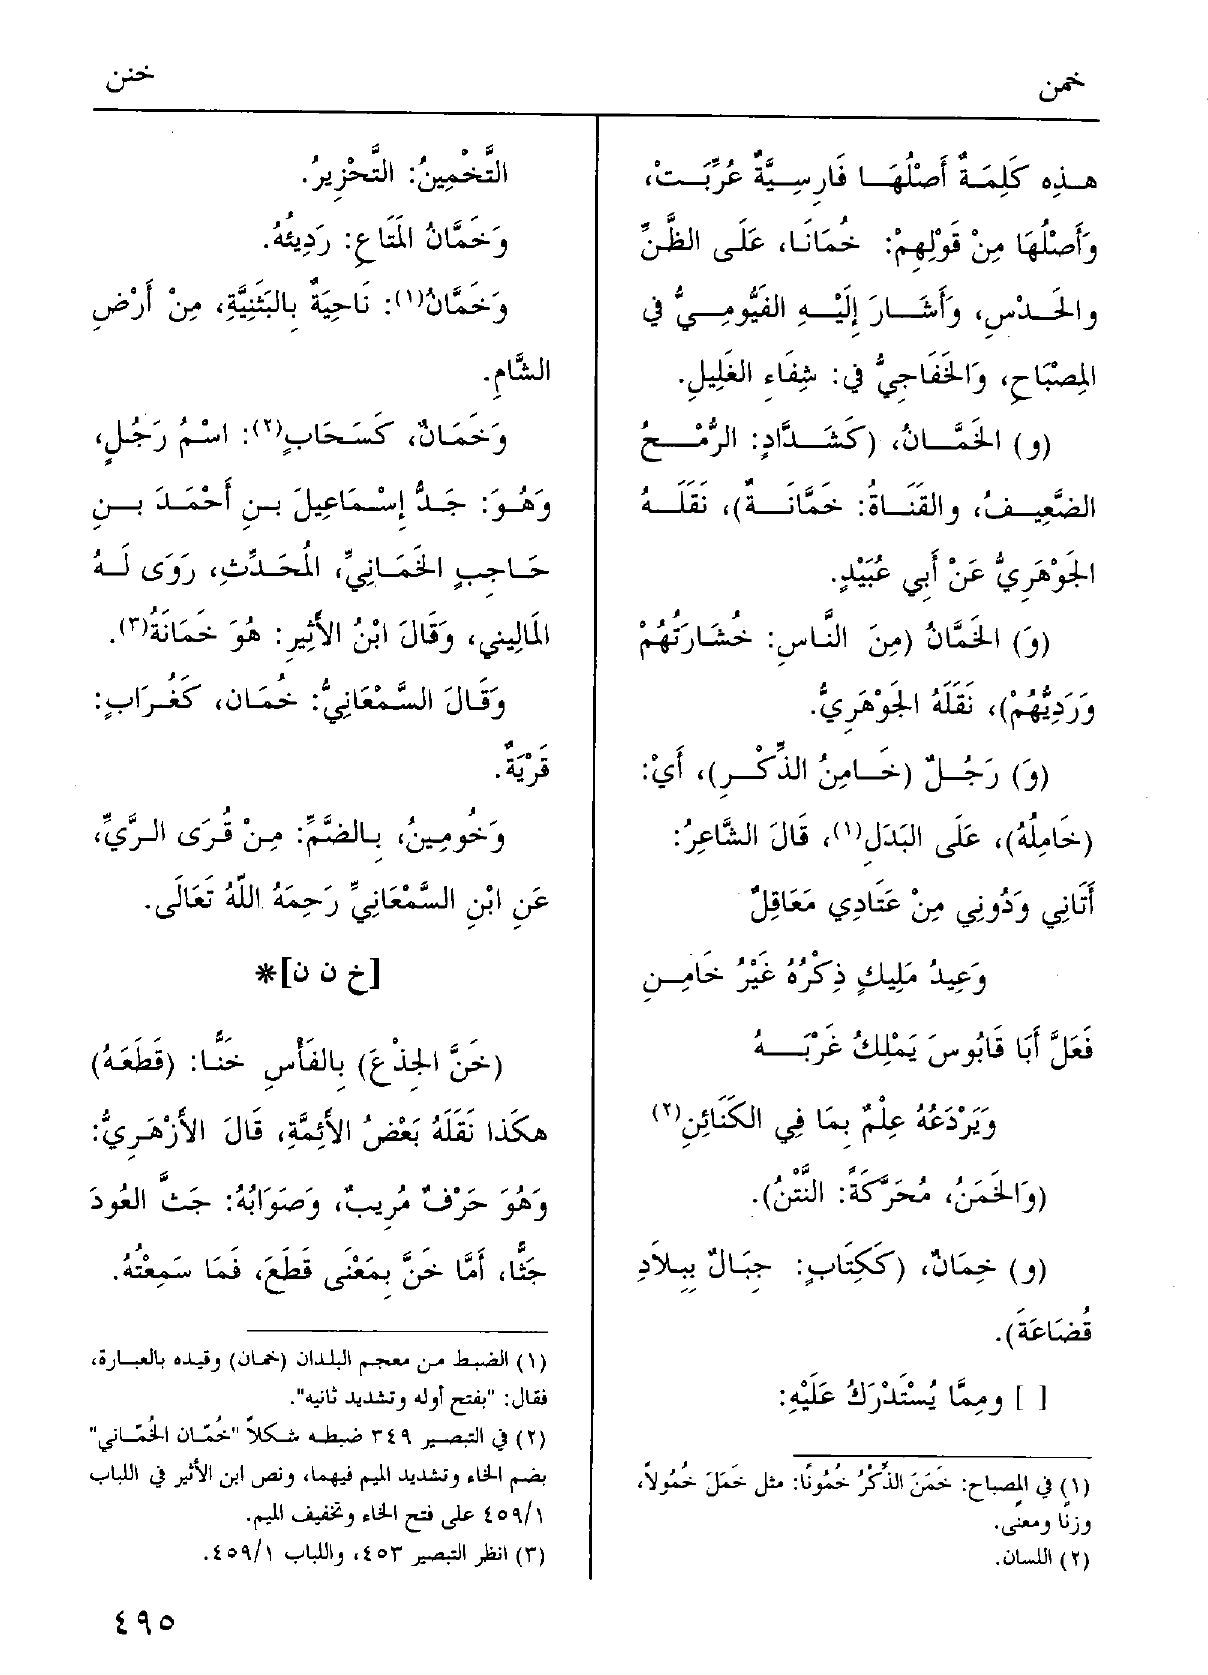 خمن
خنن
هذِه كَلِمَةٌ أَصْلُهَا فَارِسِيَّةٌ عُرِّبَتْ،
وَأَصْلُهَا مِنْ قَوْلِهِمْ: خُمَانَا، عَلَى الظَّنِّ
والحَدْسِ، وَأَشَارَ إِلَيْهِ الفَيُّومِيُّ في
المِصْبَاحِ، وَالخَفَاجِيُّ في: شِفَاءِ الغَلِيلِ.
(و) الخَمَّانُ، (كَشَدَّادٍ: الرُّمْحُ
الضَّعِيفُ، والقَنَاةُ: خَمَّانَةٌ)، نَقَلَهُ
الجَوْهَرِيُّ عَنْ أَبي عُبَيْدٍ.
(وَ) الخَمَّانُ (مِنَ النَّاسِ: خُشَارَتُهُمْ
وَرَدِيُّهُمْ)، نَقَلَهُ الجَوْهَرِيُّ.
(وَ) رَجُلٌ (خَامِنُ الذِّكْرِ)، أَيْ:
(خَامِلُهُ)، عَلَى البَدَلِ(١)، قَالَ الشَّاعِرُ:
أَتَانِي وَدُونِي مِنْ عَتَادِي مَعَاقِلٌ
وَعِيدُ مَلِيكٍ ذِكْرُهُ غَيْرُ خَامِنِ
فَعَلَّ أَبَا قَابُوسَ يَمْلِكُ غَرْبَهُ
وَيَرْدَعُهُ عِلْمٌ بِمَا فِي الكَنَائِنِ(٢)
(وَالخَمَنُ، مُحَرَّكَةً: النَّتْنُ).
(و) خِمَانٌ، (كَكِتَابٍ: جِبَالٌ بِبِلاَدِ
قُضَاعَةَ).
[ ] ومِمَّا يُسْتَدْرَكُ عَلَيْهِ:
(١) في المصباح: خَمَنَ الذِّكْرُ خُمُونًا: مثل خَمَلَ خُمُولاً،
وزنًا ومعنًى.
(٢) اللسان.
التَّخْمِينُ: التَّحْزِيرُ.
وَخَمَّانُ المَتَاعِ: رَدِيئُهُ.
وَخَمَّانُ(١): نَاحِيَةٌ بِالبَثَنِيَّةِ، مِنْ أَرْضِ
الشَّامِ.
وَخَمَانٌ، كَسَحَابٍ(٢): اسْمُ رَجُلٍ،
وَهُوَ: جَدُّ إِسْمَاعِيلَ بنِ أَحْمَدَ بنِ
حَاجِبٍ الخَمَانِيِّ، المُحَدِّثِ، رَوَى لَهُ
المَالِيني، وَقَالَ ابْنُ الأَثِيرِ: هُوَ خَمَانَةُ(٣).
وَقَالَ السَّمْعَانِيُّ: خُمَان، كَغُرَابٍ:
قَرْيَةٌ.
وَخُومِينُ، بِالضَّمِّ: مِنْ قُرَى الرَّيِّ،
عَنِ ابْنِ السَّمْعَانِيِّ رَحِمَهُ اللَّهُ تَعَالَى.
[خ ن ن]*
(خَنَّ الجِذْعَ) بِالفَأْسِ خَنًّا: (قَطَعَهُ)
هكَذا نَقَلَهُ بَعْضُ الأَئِمَّةِ، قَالَ الأَزْهَرِيُّ:
وَهُوَ حَرْفٌ مُرِيبٌ، وَصَوَابُهُ: جَثَّ العُودَ
جَثًّا، أَمَّا خَنَّ بِمَعْنَى قَطَعَ، فَمَا سَمِعْتُهُ.
(١) الضبط من معجم البلدان (خمان) وقيده بالعبارة،
فقال: "بفتح أوله وتشديد ثانيه".
(٢) في التبصير ٣٤٩ ضبطه شكلاً "خُمَّان الخُمَّاني"
بضم الخاء وتشديد الميم فيهما، ونص ابن الأثير في اللباب
٤٥٩/١ على فتح الخاء وتخفيف الميم.
(٣) انظر التبصير ٤٥٣، واللباب ٤٥٩/١.
٤٩٥